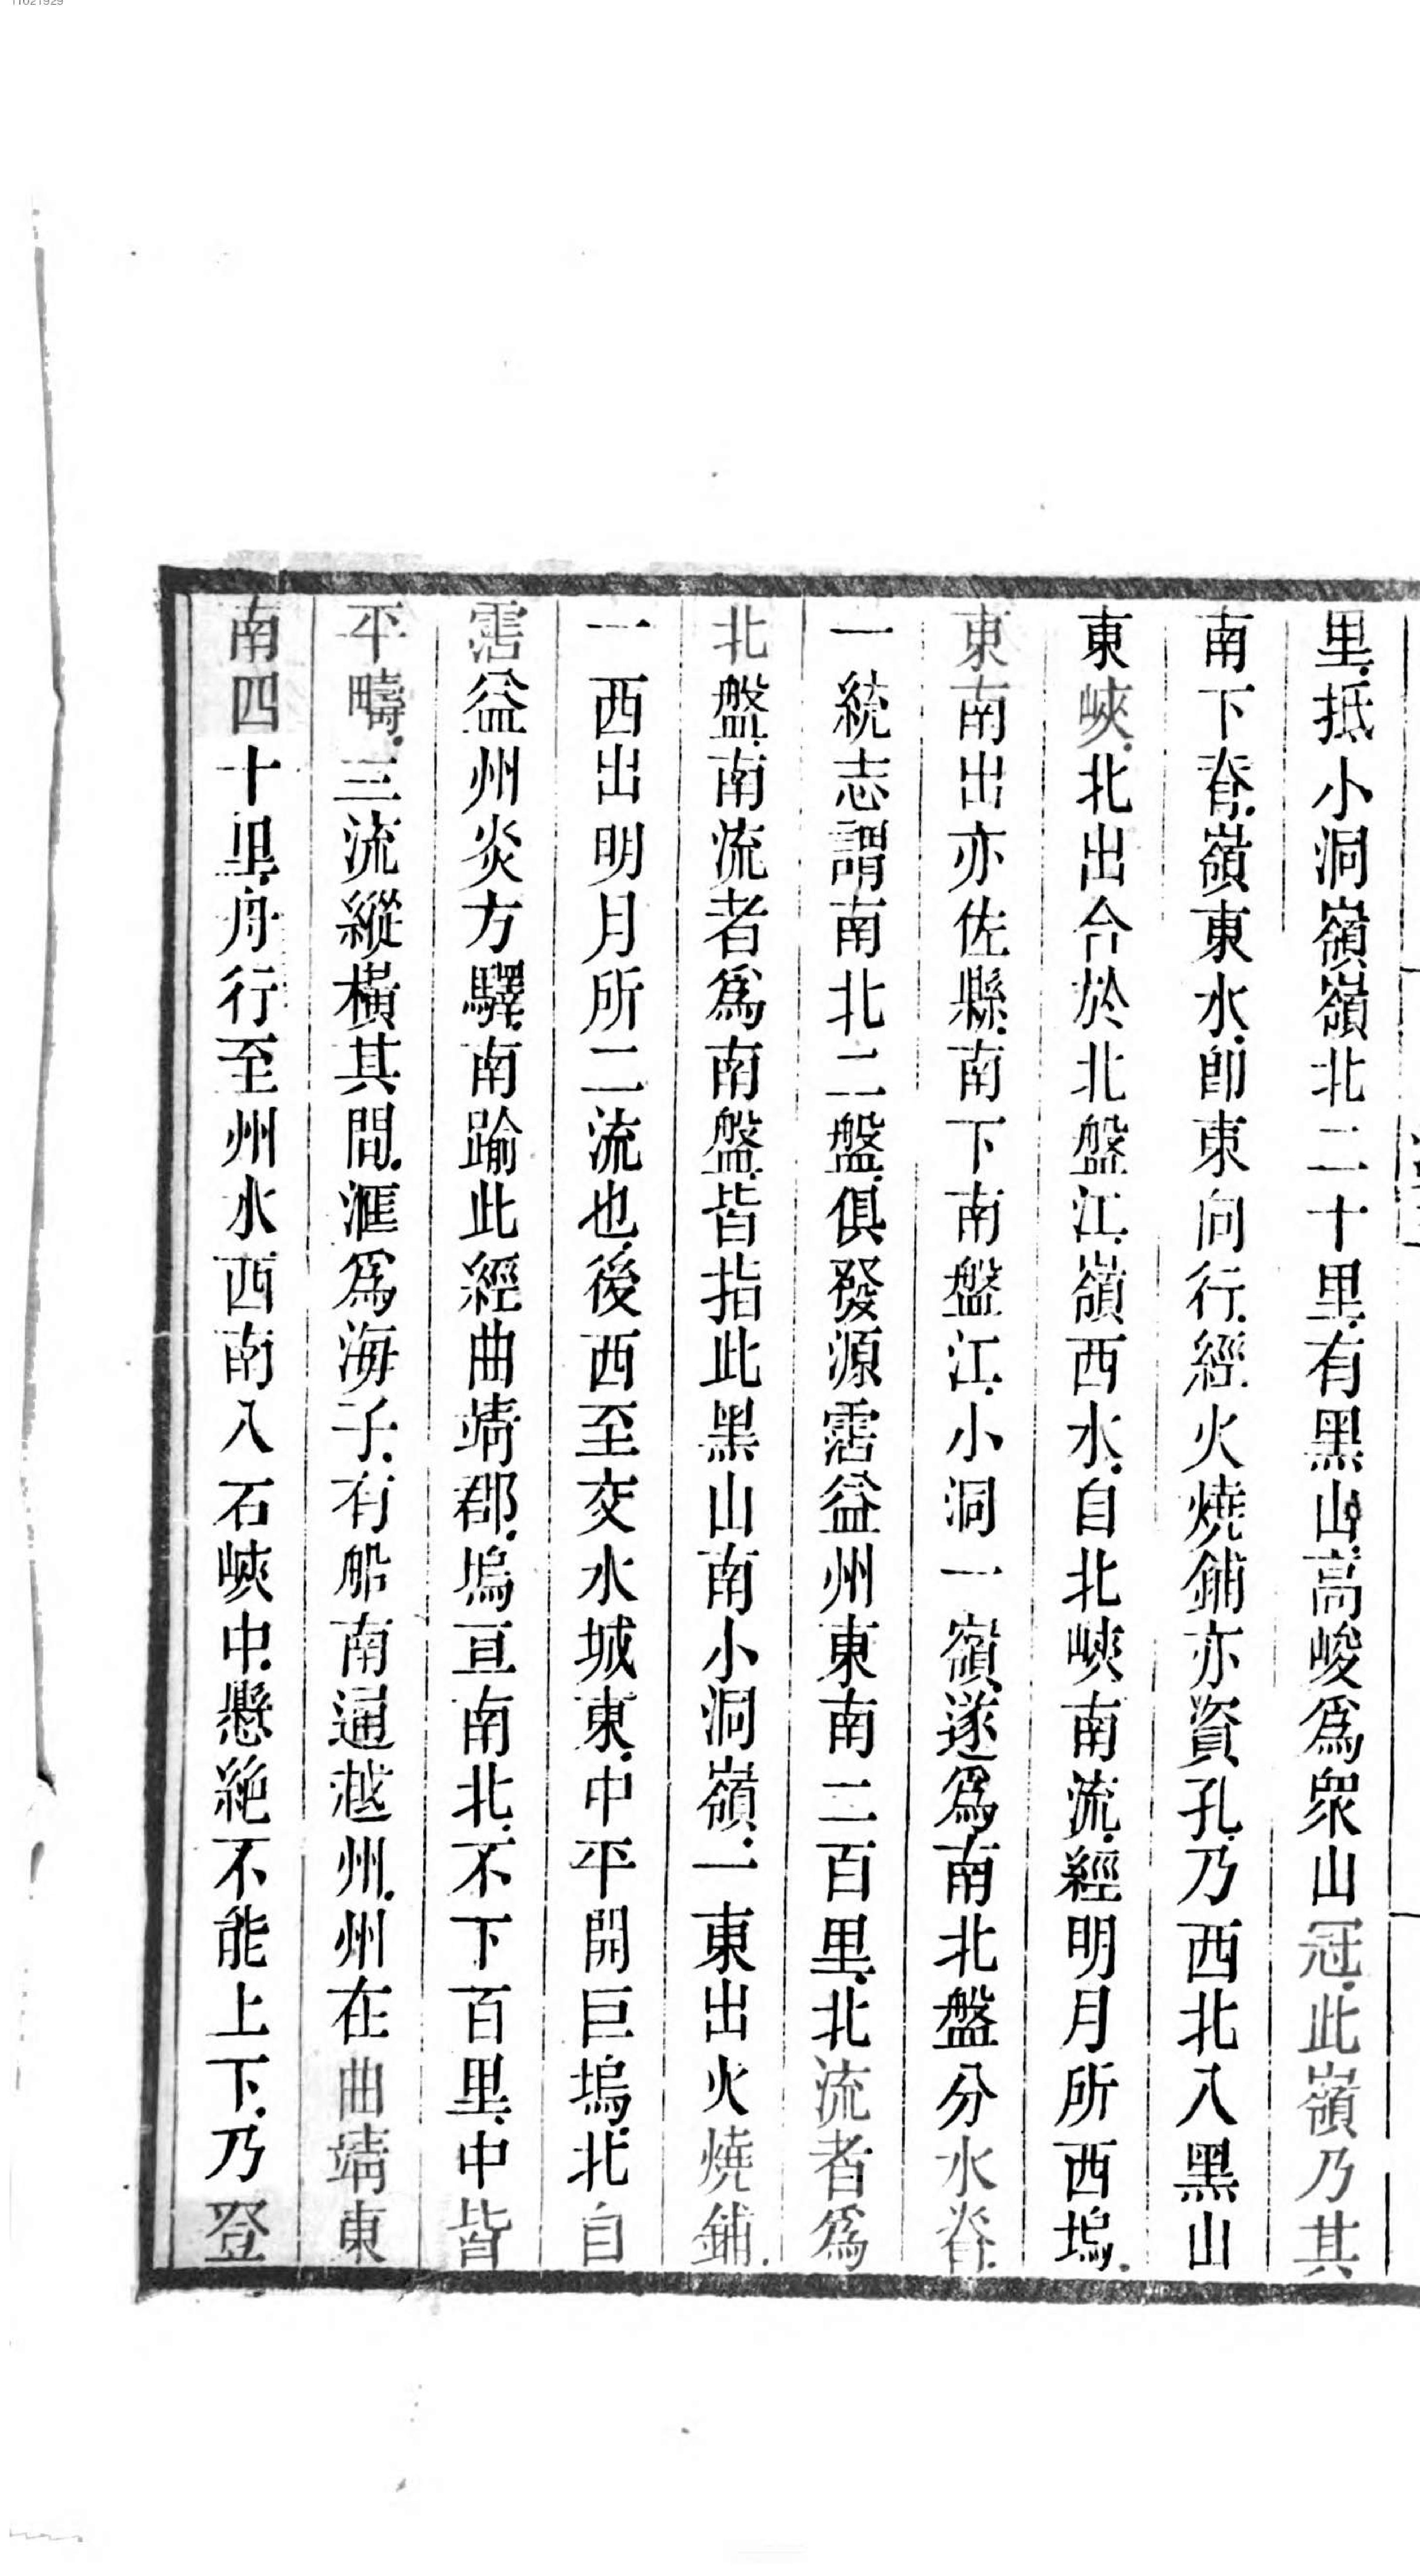 里.抵小洞嶺.嶺北二十里.有黑山.高峻爲衆山冠.此嶺乃其
南下脊.嶺東水.卽東向行.經火燒鋪亦資孔.乃西北入黑山
東峽.北出合於北盤江.嶺西水.自北峽南流.經明月所西塢.
東南出亦佐縣.南下南盤江.小洞一嶺.遂爲南北盤分水脊.
一統志謂南北二盤.俱發源霑益州東南二百里.北流者爲
北盤.南流者爲南盤.皆指此黑山南小洞嶺.一東出火燒鋪.
一西出明月所二流也.後西至交水城東.中平開巨塢.北自
霑益州炎方驛.南踰此經曲靖郡.塢亘南北.不下百里.中皆
平疇.三流縱橫其間.滙爲海子.有船南通越州.州在曲靖東
南四十里.舟行至州水西南入石峽中.懸絶不能上下.乃登